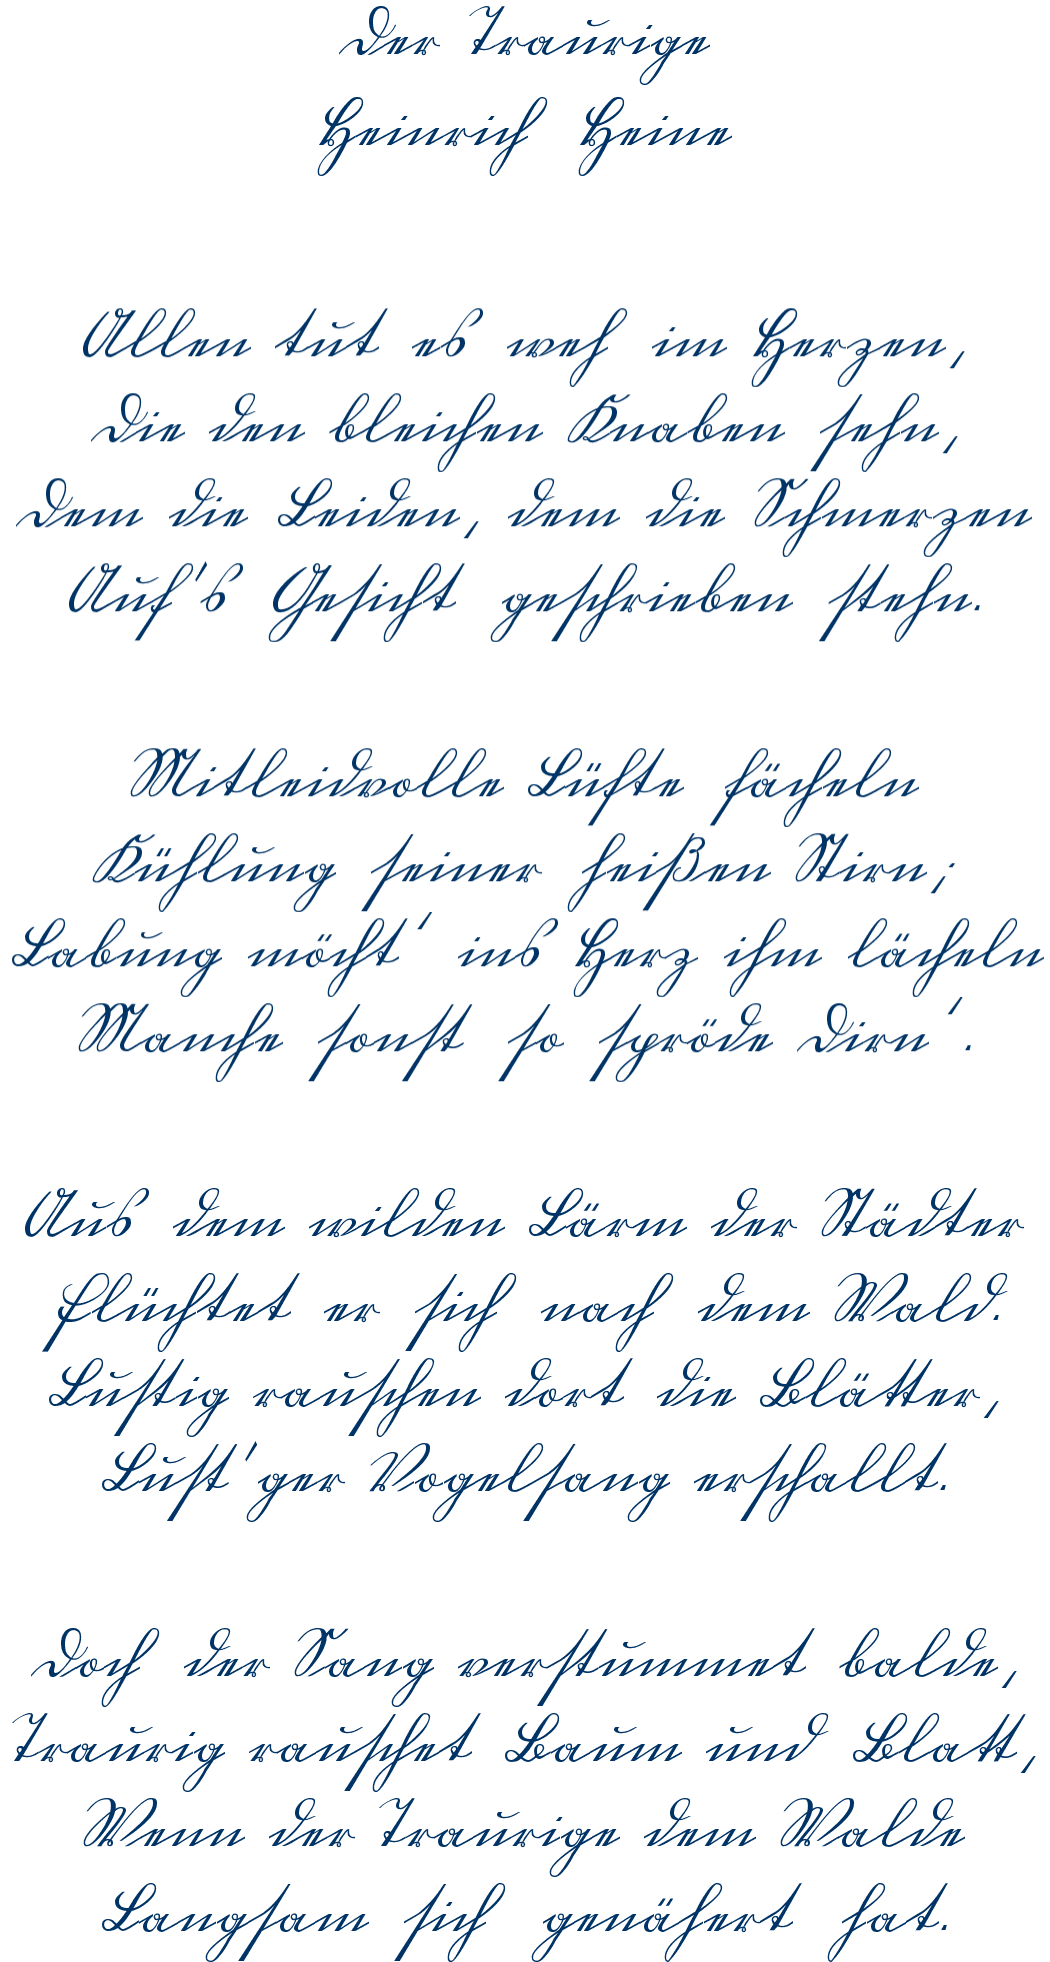 Der Traurige
Heinrich Heine
Allen tut es weh im Herzen,
Die den bleichen Knaben sehn,
Dem die Leiden, dem die Schmerzen
Auf's Gesicht geschrieben stehn.
Mitleidvolle Lüfte fächeln
Kühlung seiner heißen Stirn;
Labung möcht' ins Herz ihm lächeln
Manche sonst so spröde Dirn'.
Aus dem wilden Lärm der Städter
Flüchtet er sich nach dem Wald.
Lustig rauschen dort die Blätter,
Lust'ger Vogelsang erschallt.
Doch der Sang verstummet balde,
Traurig rauschet Baum und Blatt,
Wenn der Traurige dem Walde
Langsam sich genähert hat.